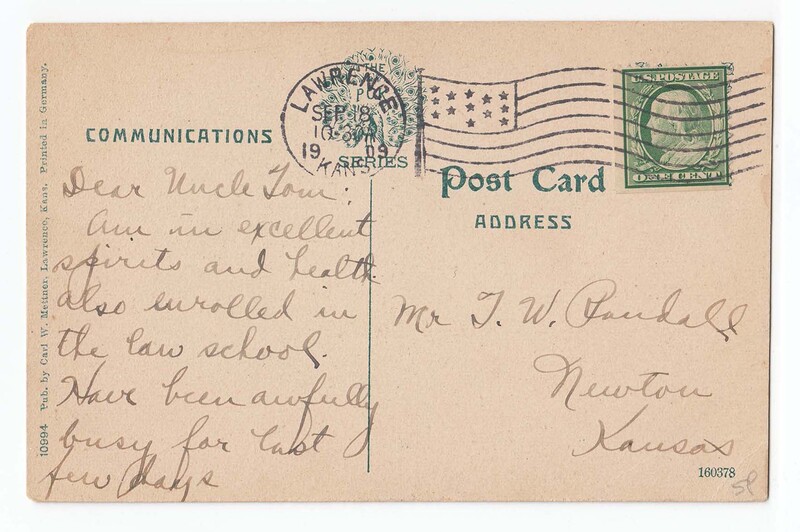 10994 Pub. by Carl W. Mettner, Lawrence, Kans. Printed in Germany.
COMMUNICATIONS
THE
P
SERIES
LAWRENCE
SEP 8
10-30A
1909
KANS
U.S. POSTAGE
ONE 1 CENT
Post Card
ADDRESS
Dear Uncle Tom:
Am in excellent
spirits and health
also enrolled in
the law school.
Have been awfully
busy for last
few days
Mr T. W. Randall
Newton
Kansas
160378